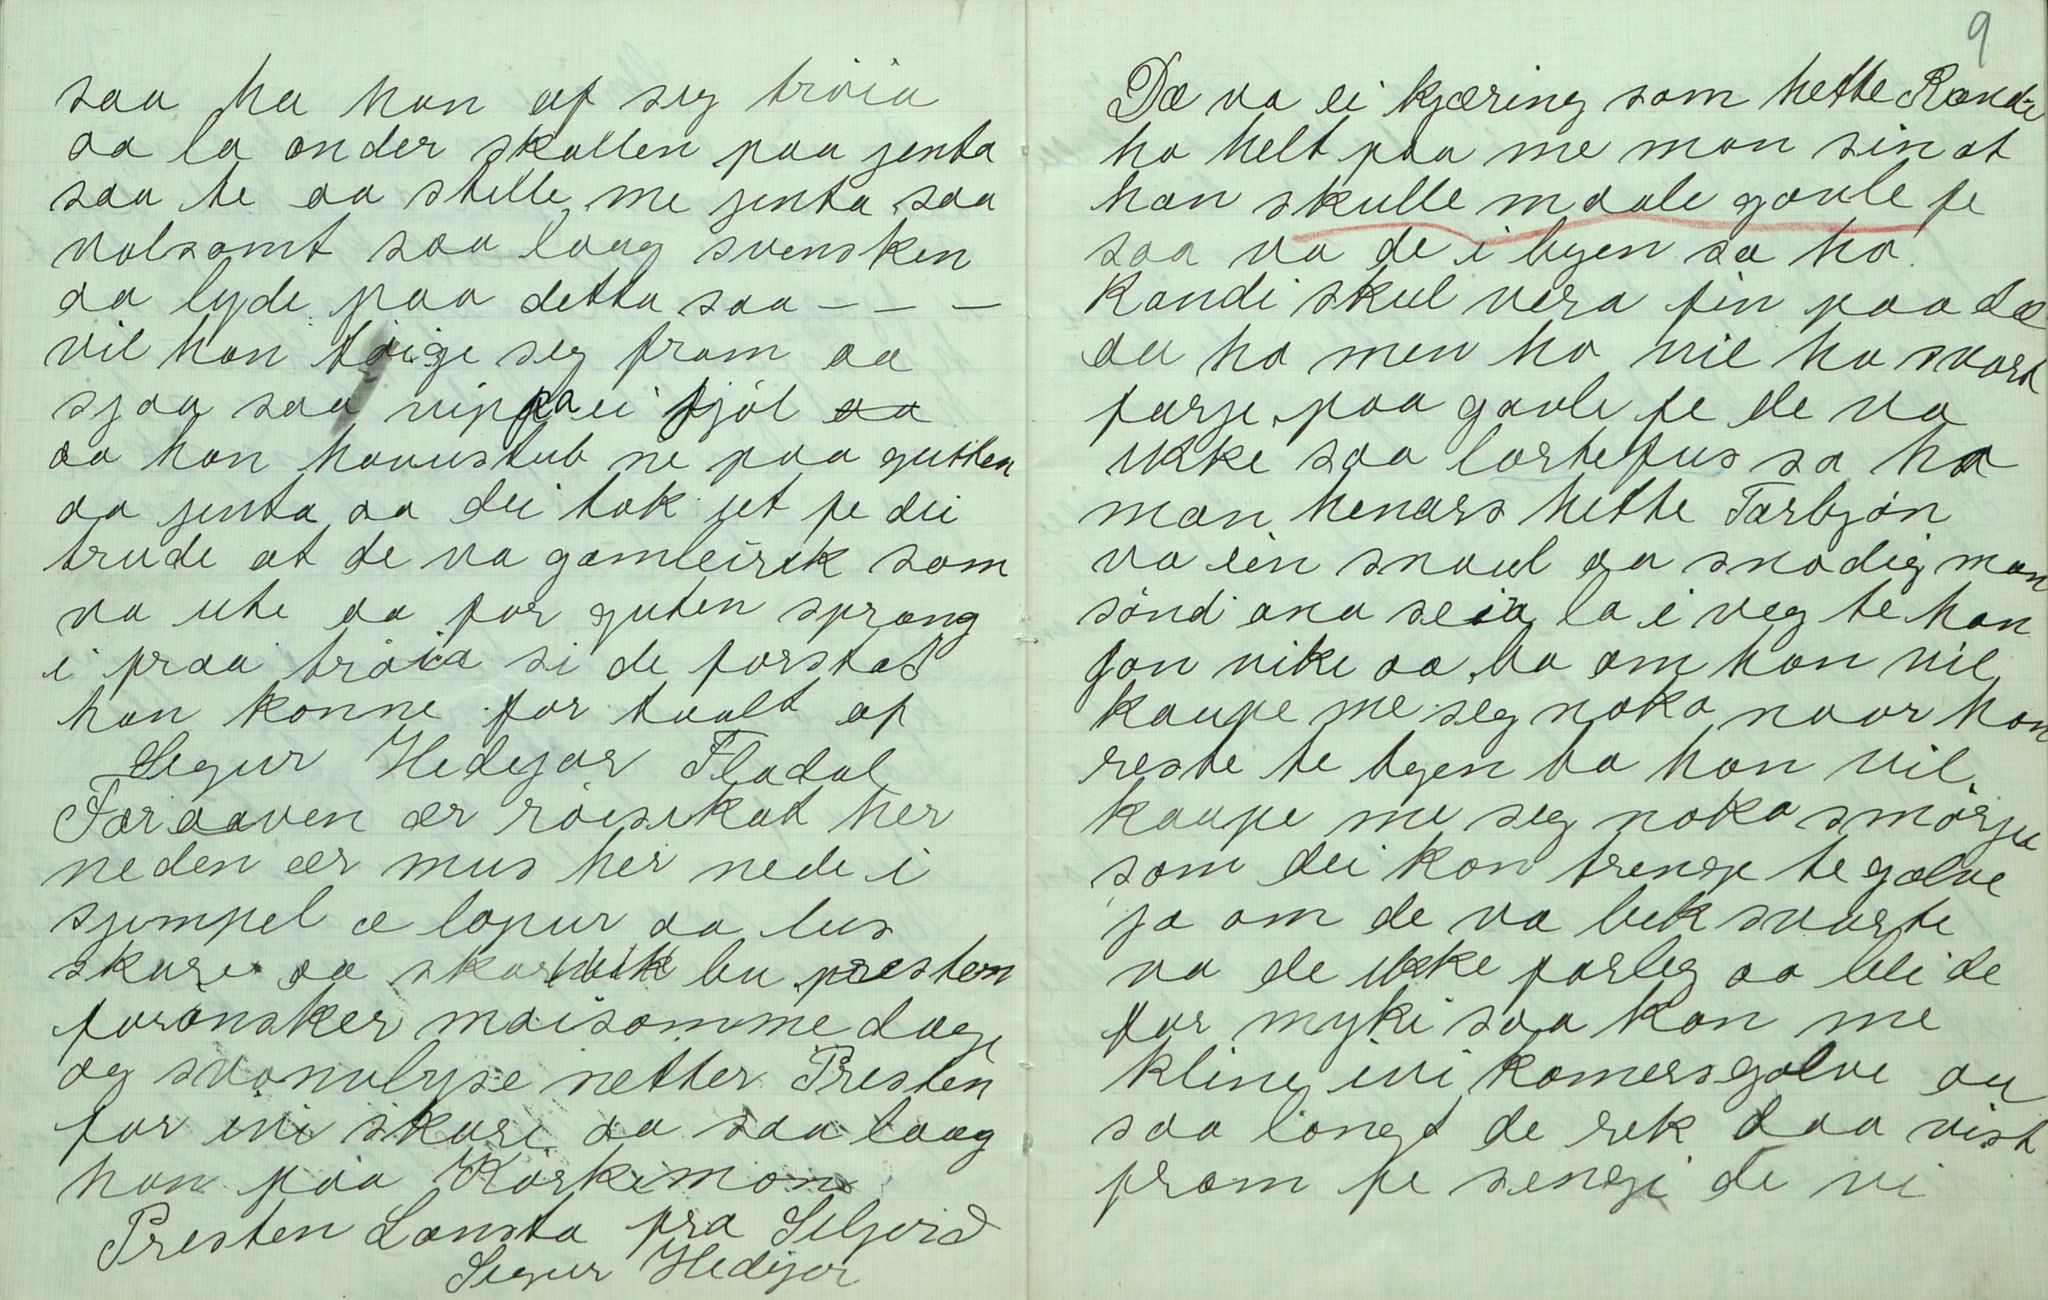 saa ha han af seg tröia
aa la onder skallen paa jenta
saa te aa stelle me jenta saa
valsamt saa laag svensken
aa lyde paa detta saa - - -
vil han töige seg fram aa
sjaa saa vippa ei fjöl aa
aa han hauustub ne paa gutten
aa jenta aa dei tok jet fe dei
trude at de va gamleirik som
va ute aa for guten sprang
i fraa tröia si de forstod
han konne for taalt af
Segur Hedejor Fladal
Faraaven ær röiskat her
neden ær mus her nede i
sjimpel æ lopur aa lus
skare aa skarvik bu presten
forönsker moisomme dage
og svovnlyse netter Presten
for ivi skare aa saa laag
han paa Körkemon
Presten Lansta fra Seljord
Segur Hedejor
9
Dæ va ei kjæring som hette Randi
ho helt paa me man sin at
han skulle maale gaule fe
saa va de i byen sa ho
Randi skul vera fin paa dæ
au ho men ho vil ha svart
farje paa gaule fe de va
ikke saa lortefus sa ho
man henars hette Tarbjön
va ein snaal aa snodig man
sönd ana seia la i veg te han
Jon vike aa ba om han vil
kaupe me seg noko naar han
reste te byen ba han vil
kaupe me seg noko smörju
som dei kan trenge te golve
ja om de va bek svarte
va de ikke farleg aa blei de
for myki saa kan me
kline ivi kamersgolve au
saa langt de rek daa vist
fram fe sengi de vi